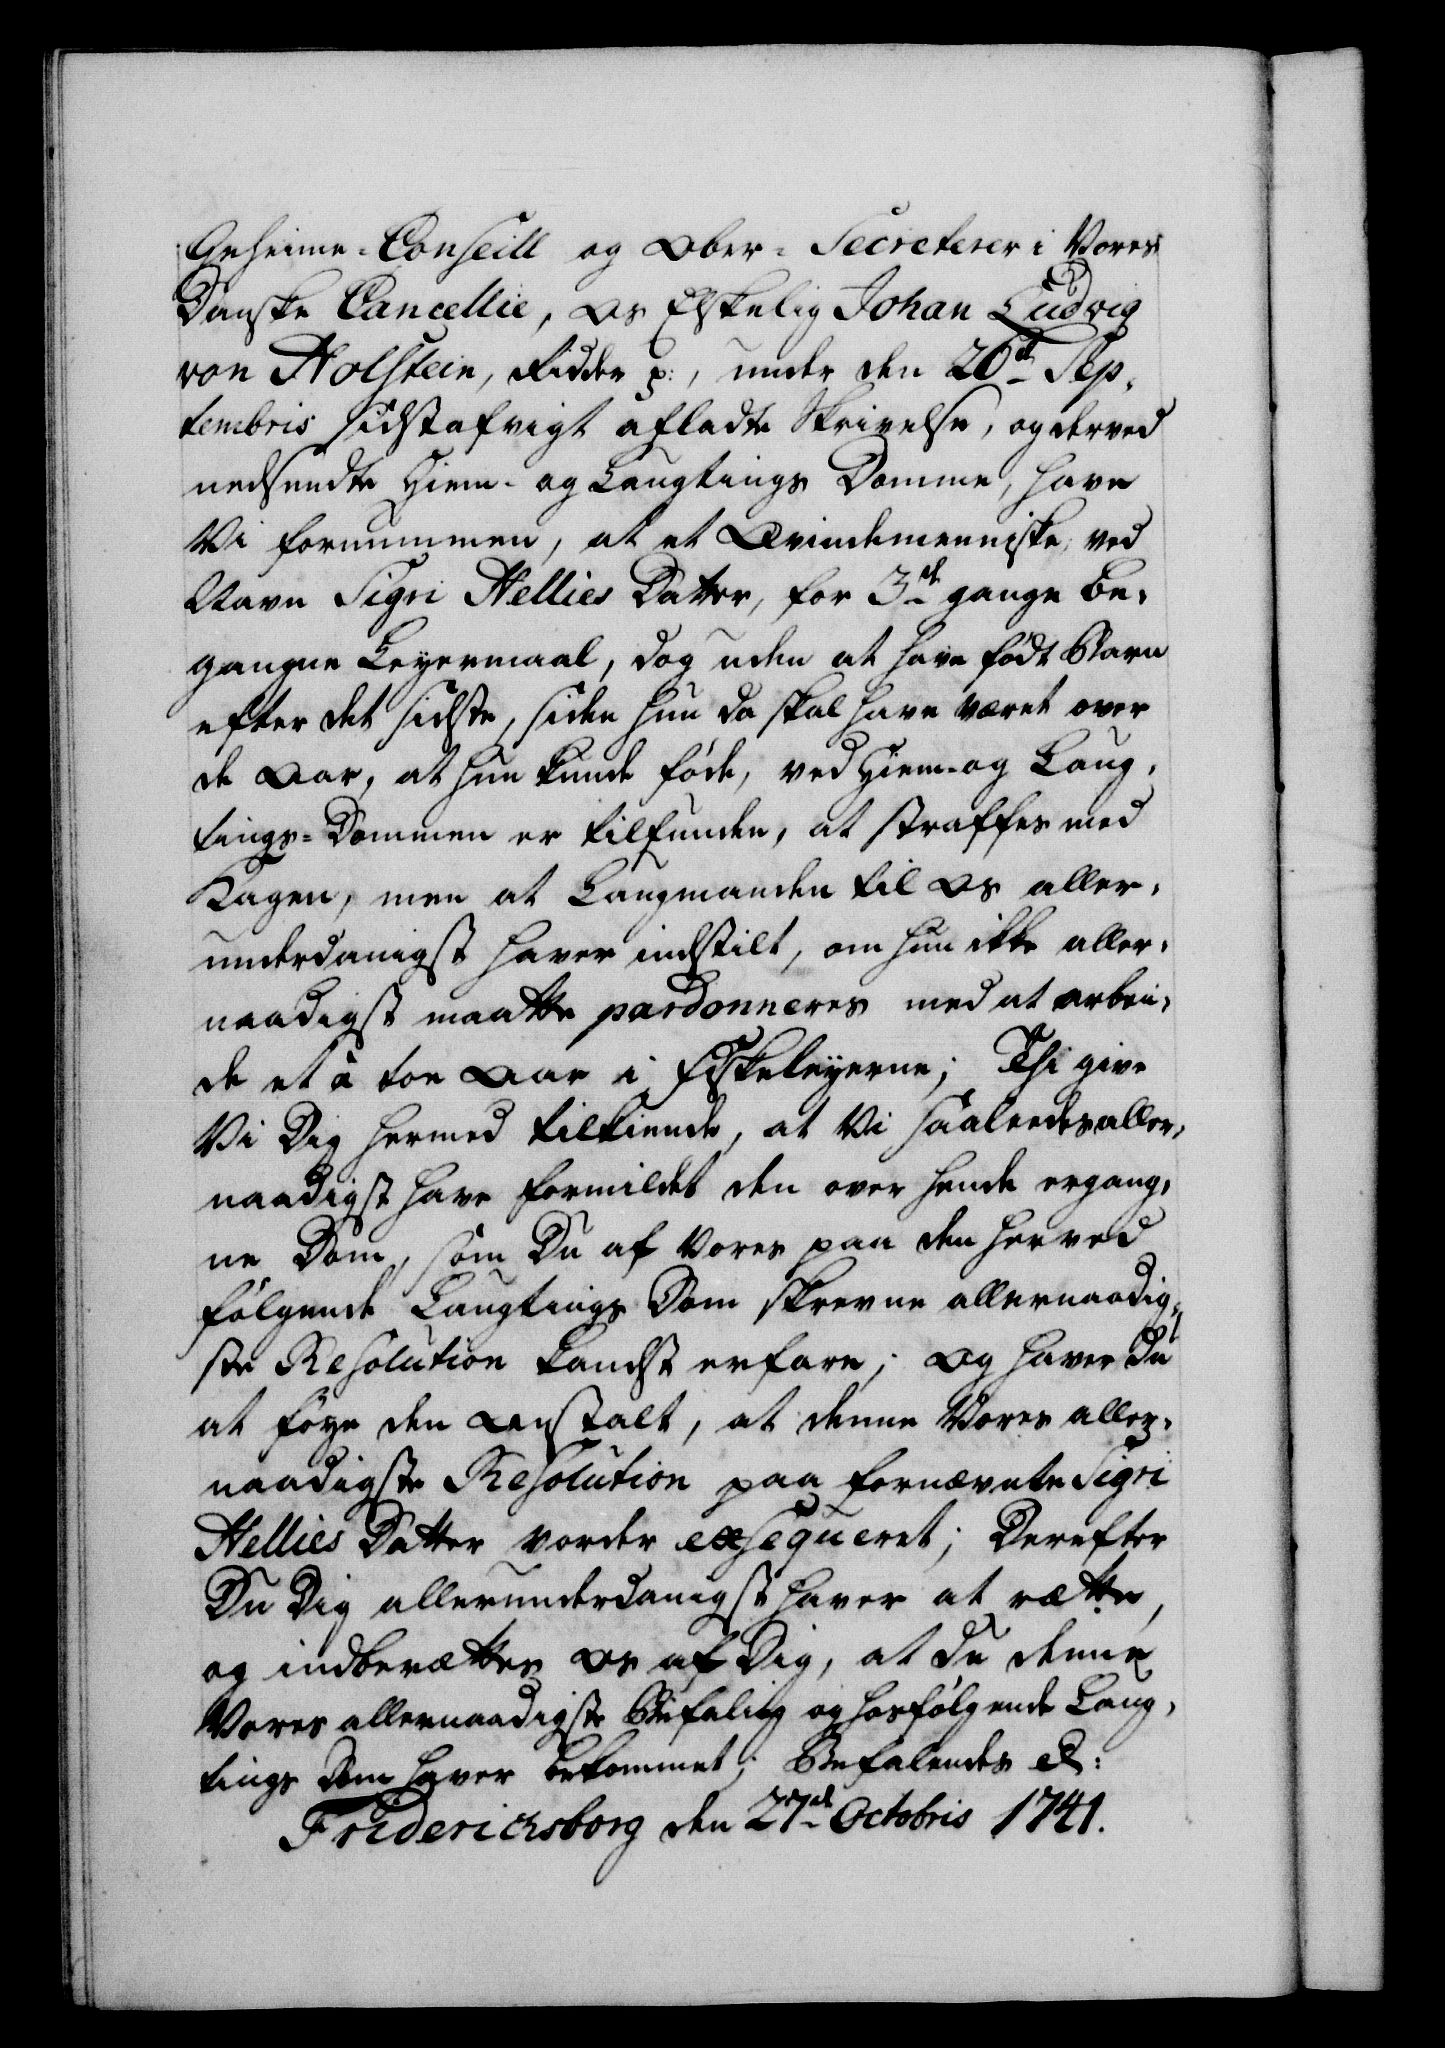 Geheime-Conseill og Ober-Secreterer i Vores
Danske Cancellie, Os Elskelig Johan Ludvig
von Holstein, Ridder p:, under den 26de Sep-
tembris sidstafvigt afladte Skrivelse, og derved
nedsendte Hiem- og Laugtings Domme, have
Vi fornummen, at et Qvindemenniske, ved
Navn Sigri Hellies Datter, for 3de gange be-
gangne Leyermaal, dog uden at have födt Barn
efter det sidste, siden hun da skal have været over
de Aar, at hun kunde föde, ved Hiem- og Laug-
tings-Dommen er tilfunden, at straffes med
Kagen, men at Laugmanden til Os aller-
underdanigst haver indstilt, om hun ikke aller-
naadigst maatte pardonneres med at arbei-
de et à toe Aar i Fiskeleyerne; Thi give
Vi Dig hermed tilkiende, at Vi saaleedes aller-
naadigst have formildet den over hende ergang-
ne Dom, som Du af Vores paa den herved
fölgende Laugtings Dom skrevne allernaadig-
ste Resolution kandst erfare; Og haver Du
at föye den Anstalt, at denne Vores aller-
naadigste Resolution paa fornævnte Sigri
Hellies Datter vorder exsequeret; Derefter
Du Dig allerunderdanigst haver at rætte,
og indberættes Os af Dig, at Du denne
Vores allernaadigste Befaling og hosfölgende Laug-
tings Dom haver bekommet; Befalendes &:
Friderichsborg den 27de Octobris 1741.